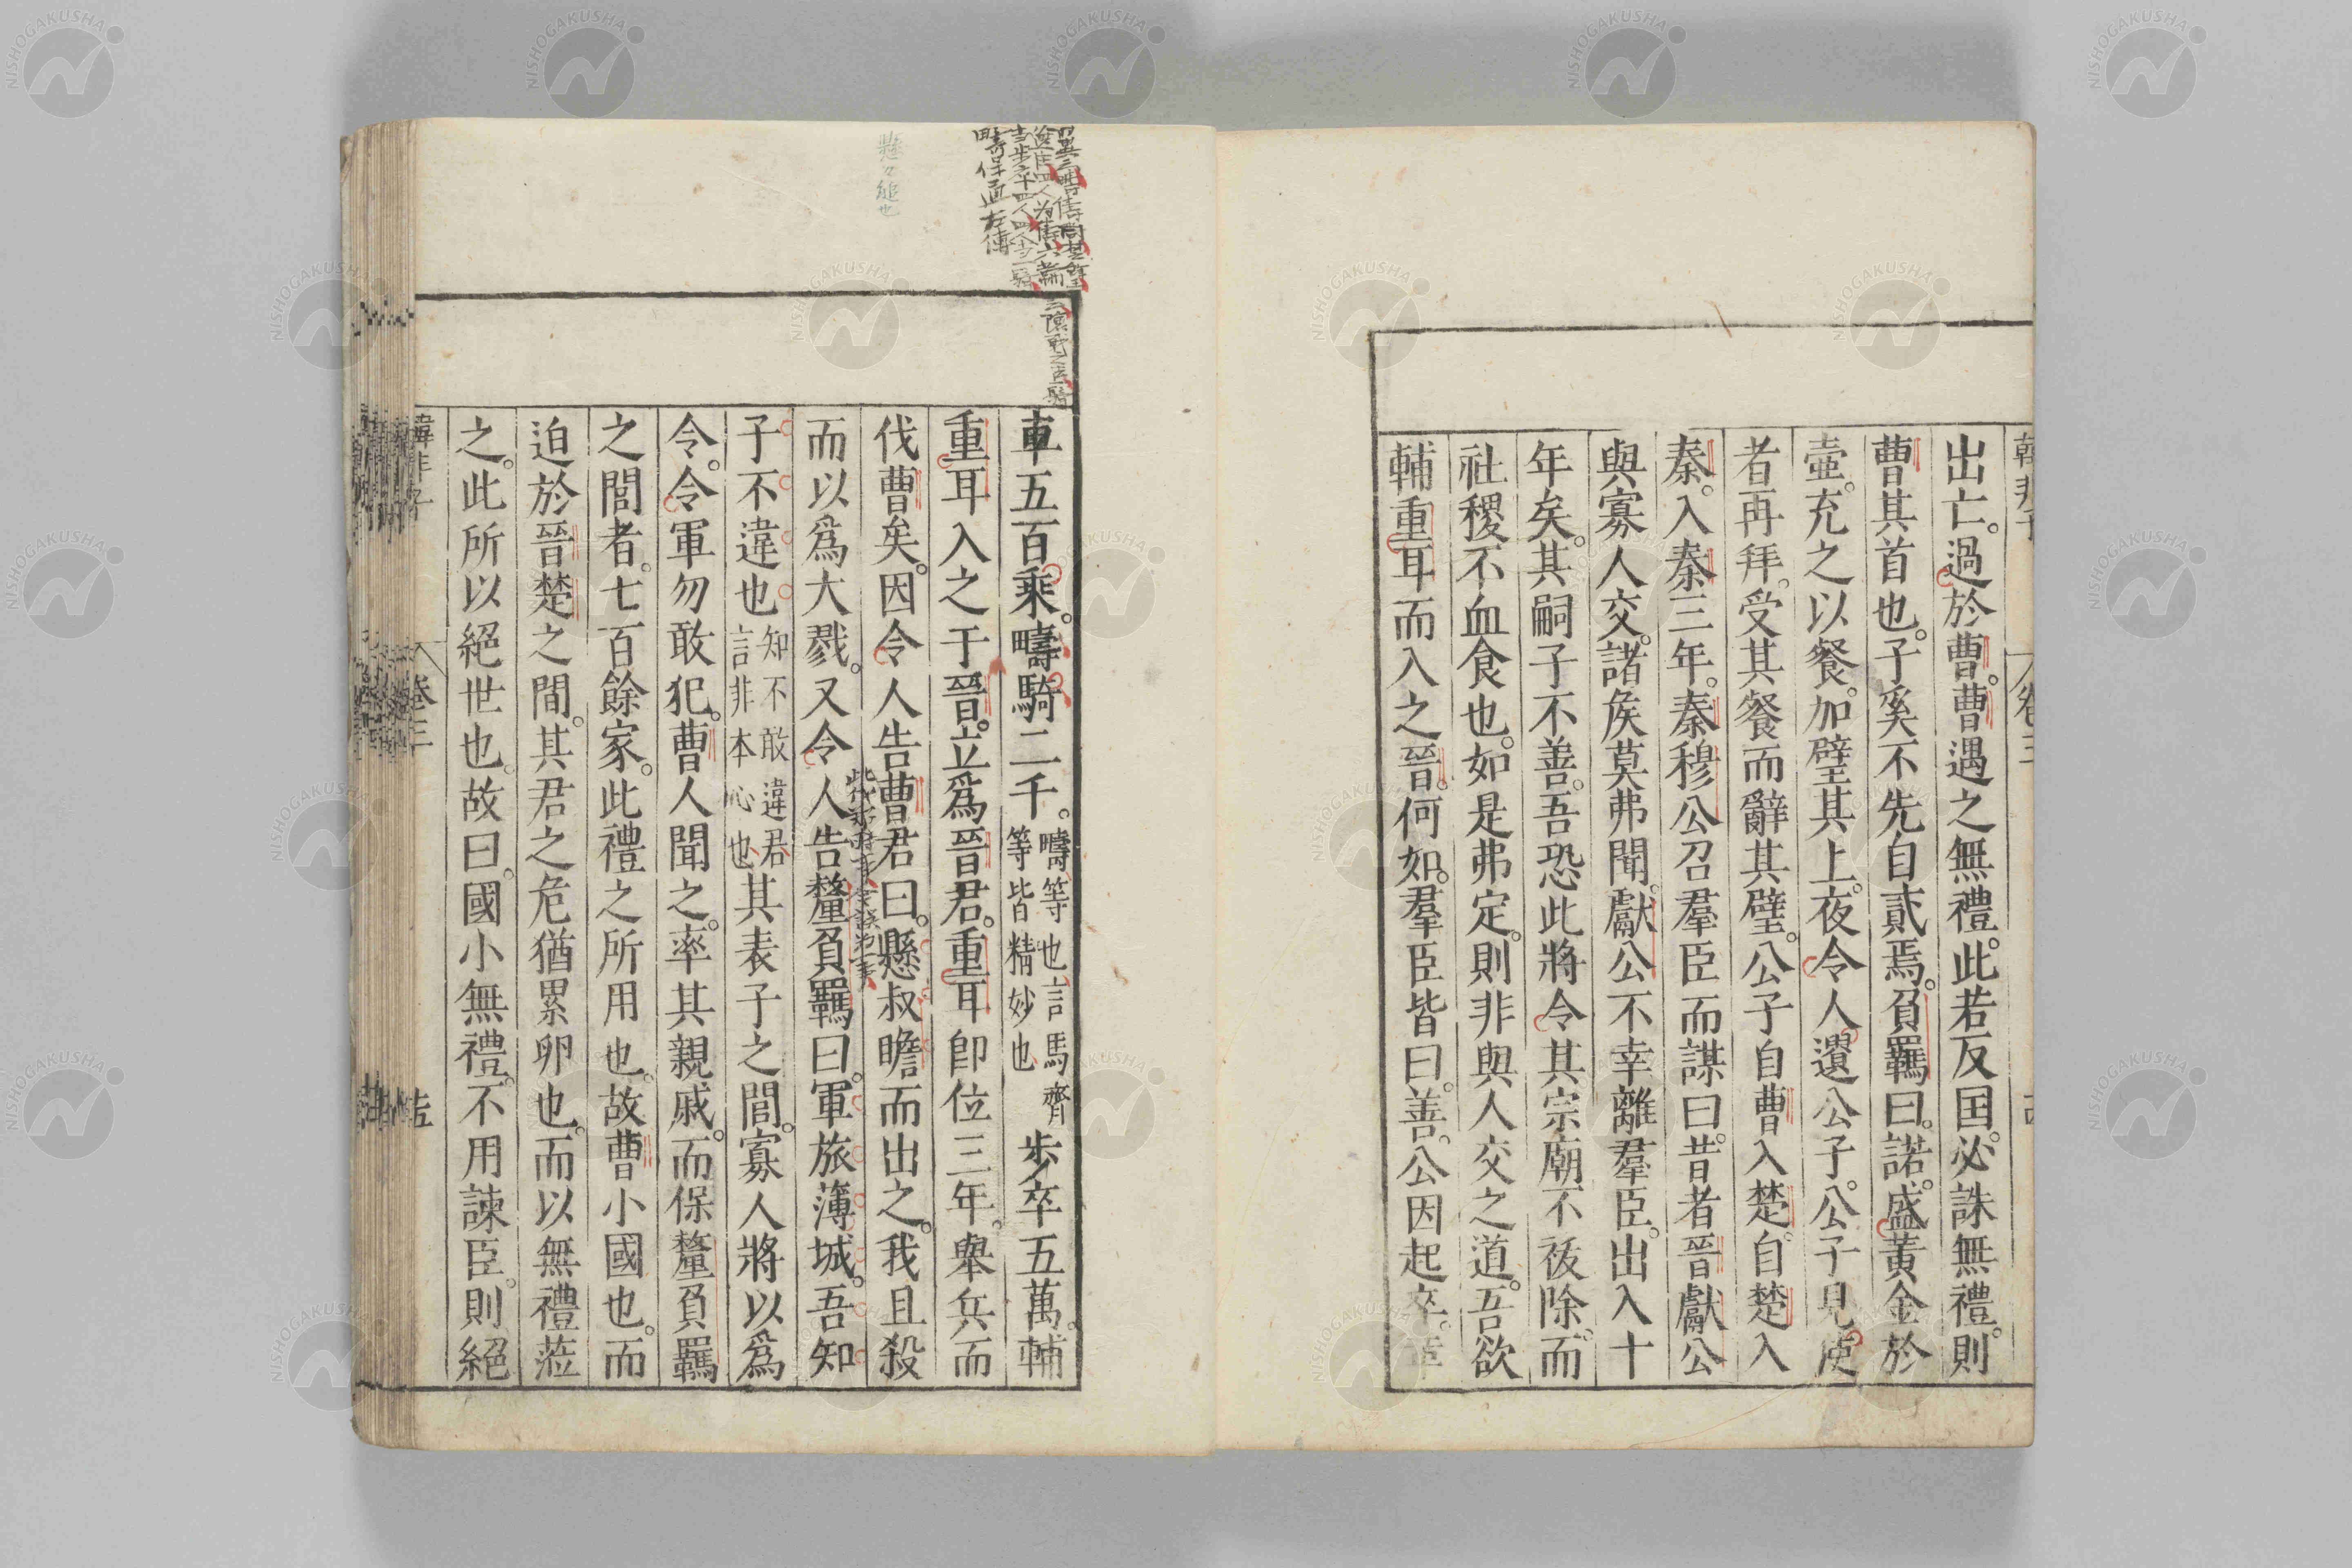 韓非子 卷三
出亡。過於曹。曹遇之無禮。此若反国。必誅無禮。則
曹其首也。子奚不先自貳焉。負羈曰。諾。盛黃金於
壺。充之以餐。加璧其上。夜令人遺公子。公子見使
者再拜。受其餐而辭其璧。公子自曹入楚。自楚入
秦。入秦三年。秦穆公召羣臣而謀曰。昔者晉獻公
與寡人交。諸矦莫弗聞。獻公不幸離羣臣。出入十
年矣。其嗣子不善。吾恐此將令其宗廟不祓除。而
社稷不血食也。如是弗定。則非與人交之道。吾欲
輔重耳而入之晉。何如。羣臣皆曰。善。公因起卒。革
車五百乘。疇騎二千。疇等也言馬齊等皆精妙也步卒五萬。輔
重耳入之于晉。立爲晉君。重耳卽位三年。舉兵而
伐曹矣。因令人告曹君曰。懸叔瞻而出之。我且殺
而以爲大戮。又令人告釐負羈曰。軍旅薄城。吾知
子不違也知不敢違君言非本心也其表子之閭。寡人將以爲
令。令軍勿敢犯。曹人聞之。率其親戚。而保釐負羈
之閭者。七百餘家。此禮之所用也。故曹小國也。而
迫於晉楚之間。其君之危猶累卵也。而以無禮蒞
之。此所以絕世也。故曰。國小無禮。不用諫臣。則絕
韓非子 卷三
NISHOGAKUSHA